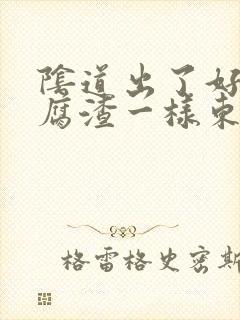 陰道出了好
腐渣一樣東
格雷格史密斯